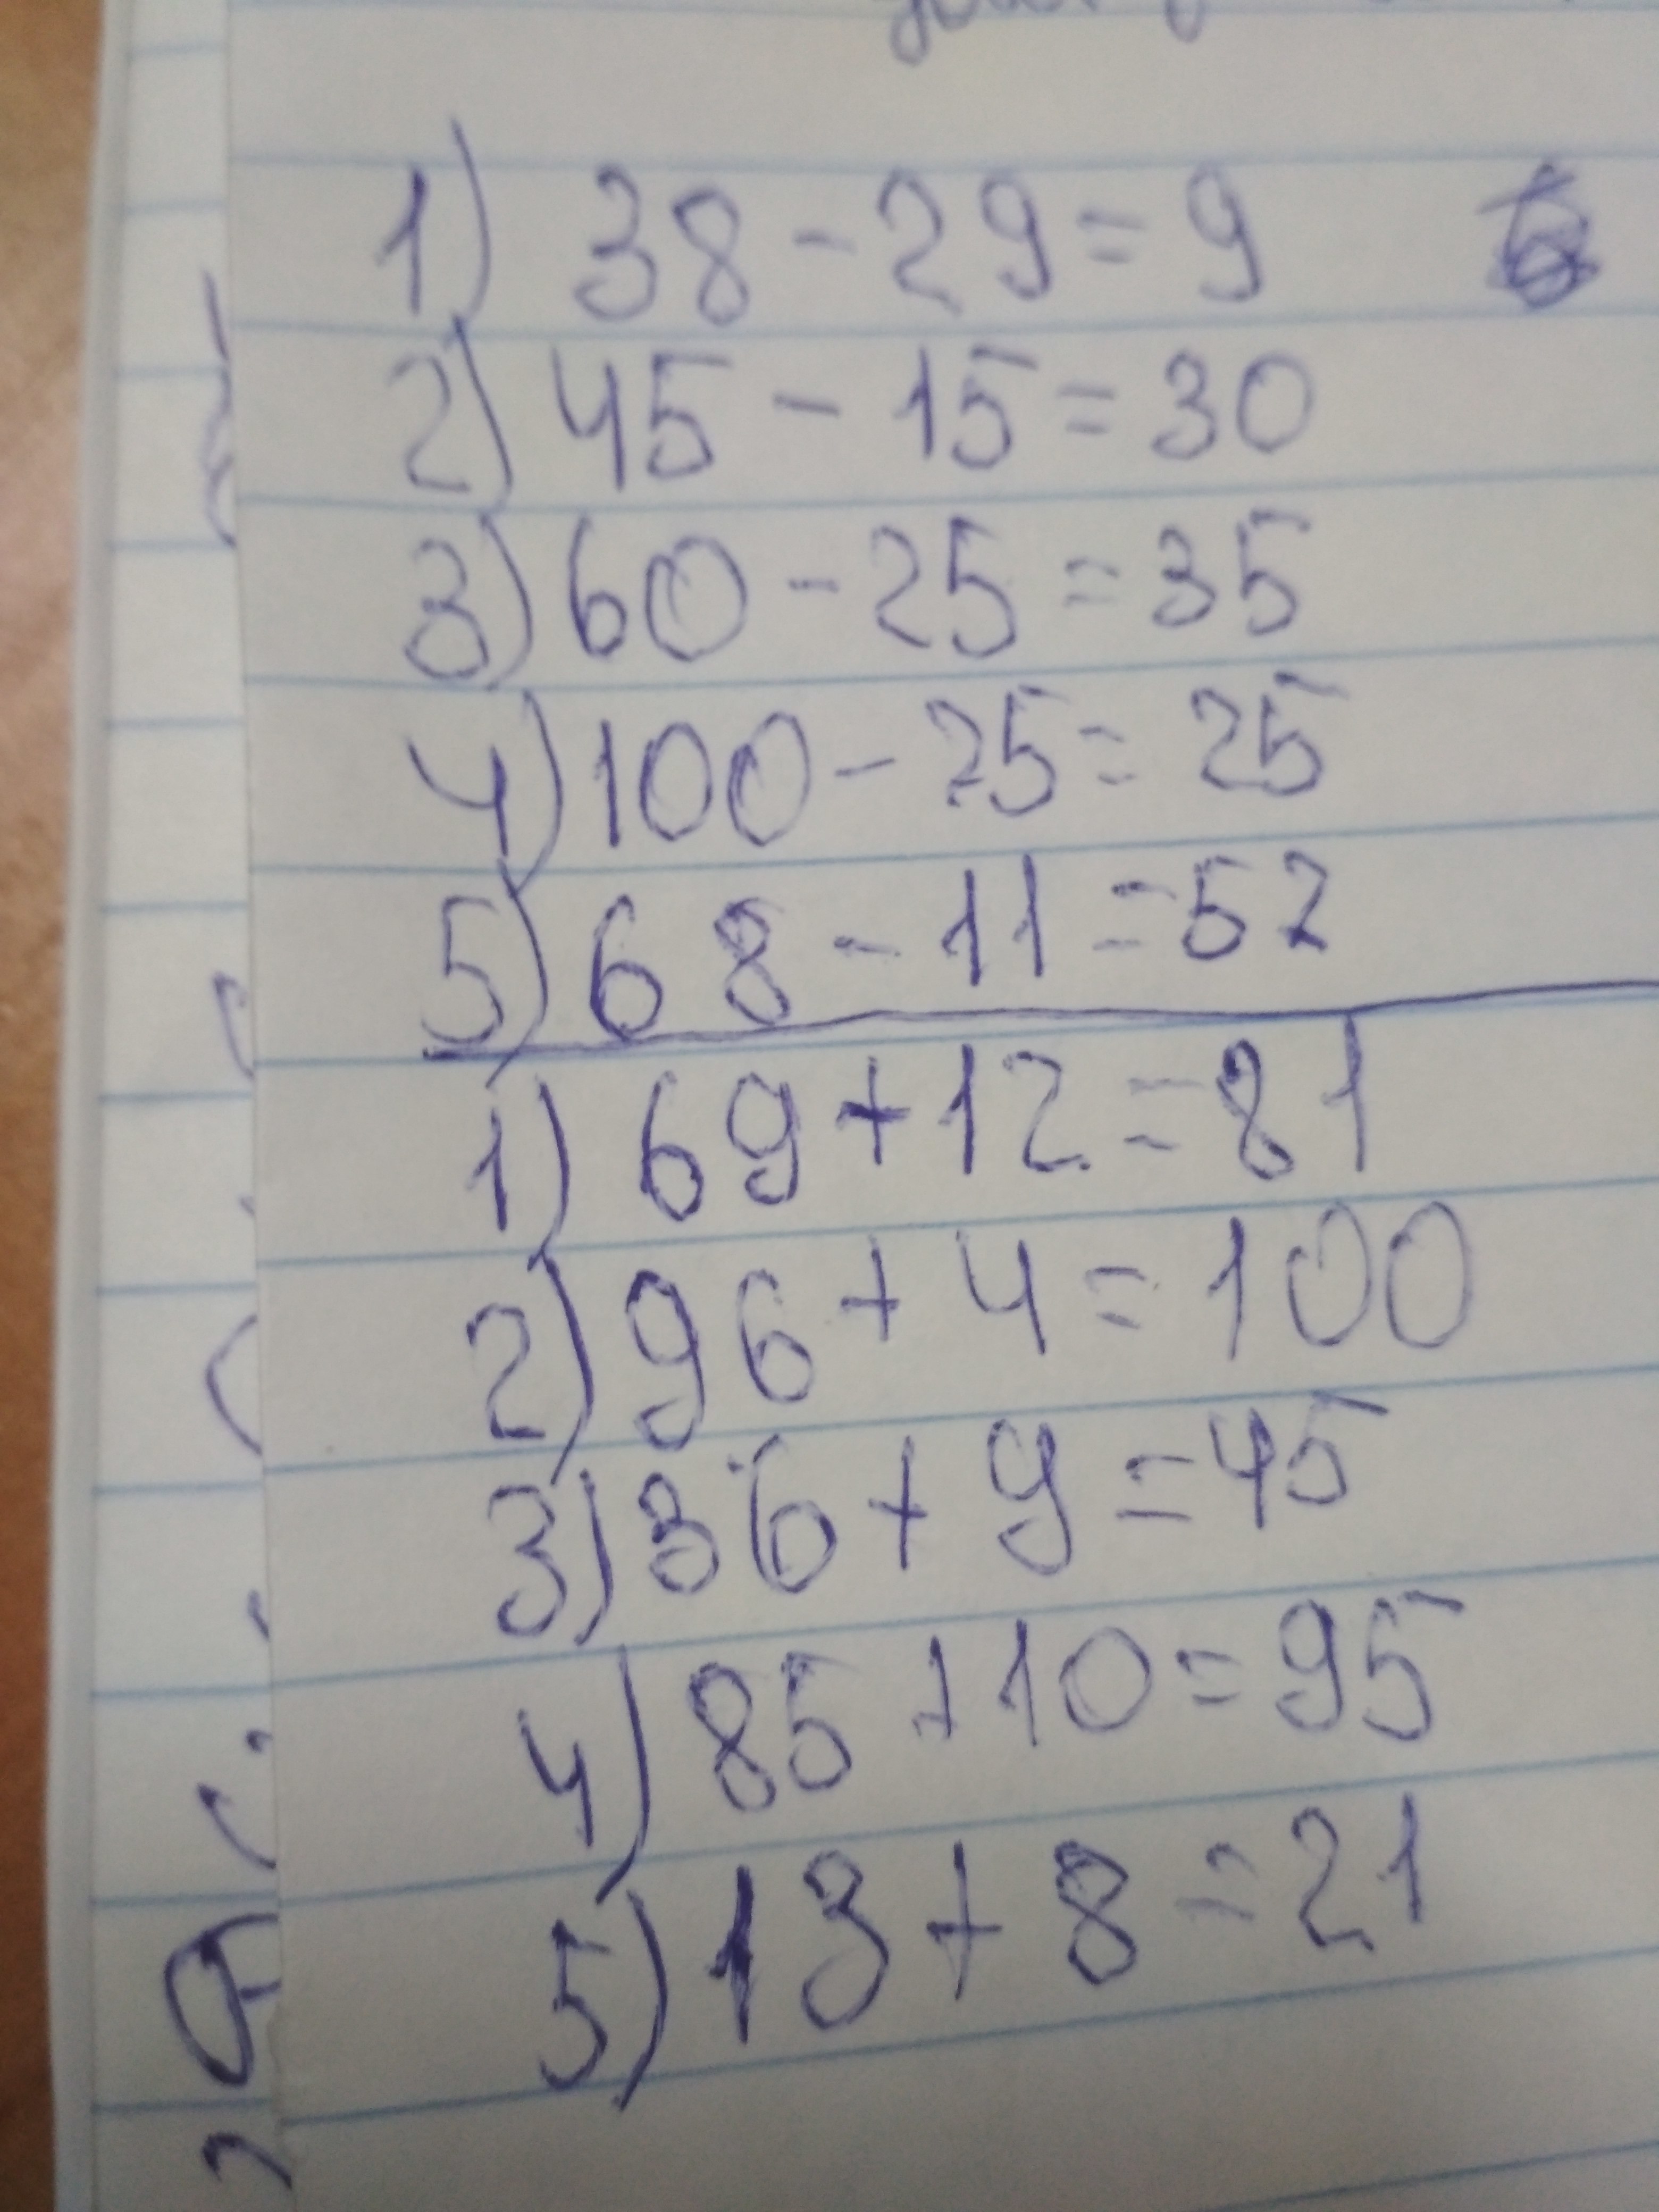 1) 38 - 29 = 9
2) 45 - 15 = 30
3) 60 - 25 = 35
4) 100 - 25 = 25
5) 68 - 11 = 52
1) 69 + 12 = 81
2) 96 + 4 = 100
3) 36 + 9 = 45
4) 85 + 10 = 95
5) 13 + 8 = 21